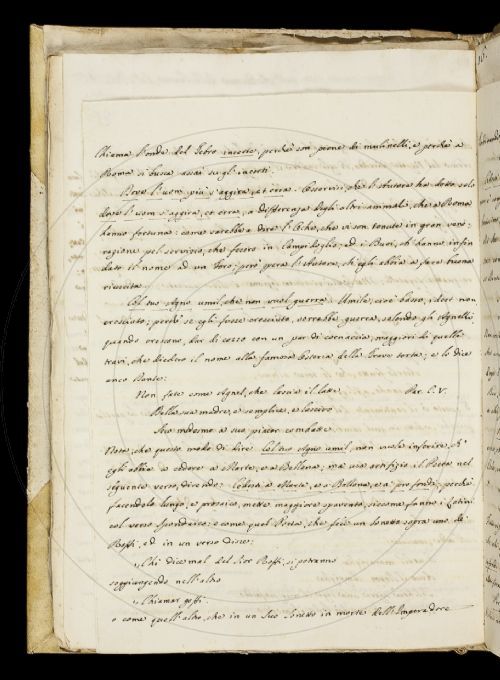 Chiama l'onde del Tebro incerte, perchè son piene di mulinelli, e perchè a
Roma si busca assai su gl'incerti.
Dove l'uom più s'aggira, et erra. Osservisi, che l'Autore ha detto solo
dove l'uom s'aggira, et erra, a differenza degli altri animali, che a Roma
hanno fortuna: come sarebbe a dire l'Oche, che vi son tenute in gran vene-
razione pel servizio, che fecero in Campidoglio, ed i Buoi, ch'hanno infin
dato il nome ad un Foro; però spera l'Autore, ch'egli abbia a fare buona
riuscita.
Col tuo Agno umil, che non vuol guerra. Umile, cioè basso, cioè non
cresciuto; perchè se egli fosse cresciuto, vorrebbe guerra, solendo gli Agnelli,
quando crescono, dar di cozzo con un par di cornaccia, maggiori di quelle
travi, che diedero il nome alla famosa Osteria della Trave torta; e lo dice
anco Dante:
Non fate come Agnel, che lascia il latte Par. C. V.
Della sua madre, e semplice, e lascivo
Seco medesmo a suo piacer combatte
Noto, che questo modo di dire. Col tuo Agno umil, non vuole inferire, ch'
egli abbia a cedere a Marte, e a Bellona, ma usa artifizio il Poeta nel
seguente verso, dicendo: Cederti e Marte, e o Bellona, e i pro fondi; perchè
facendolo lungo, e prosaico, mette maggiore spavento, siccome fanno i Latini
col verso Spondaico; e come quel Poeta, che fece un Sonetto sopra uno de'
Rossi, ed in un verso disse:
Chi dice mal del Sior Rossi, si potranno
soggiungendo nell'altro
Chiamar goffi.
o come quell'altro, che in un suo Sonetto in morte dell'Imperadore